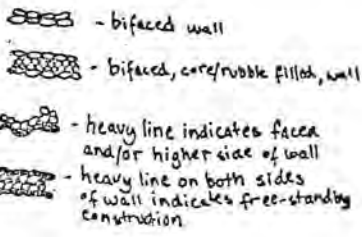 - bifaced wall
- bifaced, core/rubble filled, wall
- heavy line indicates faced
and/or higher side of wall
- heavy line on both sides
of wall indicates free-standing
construction